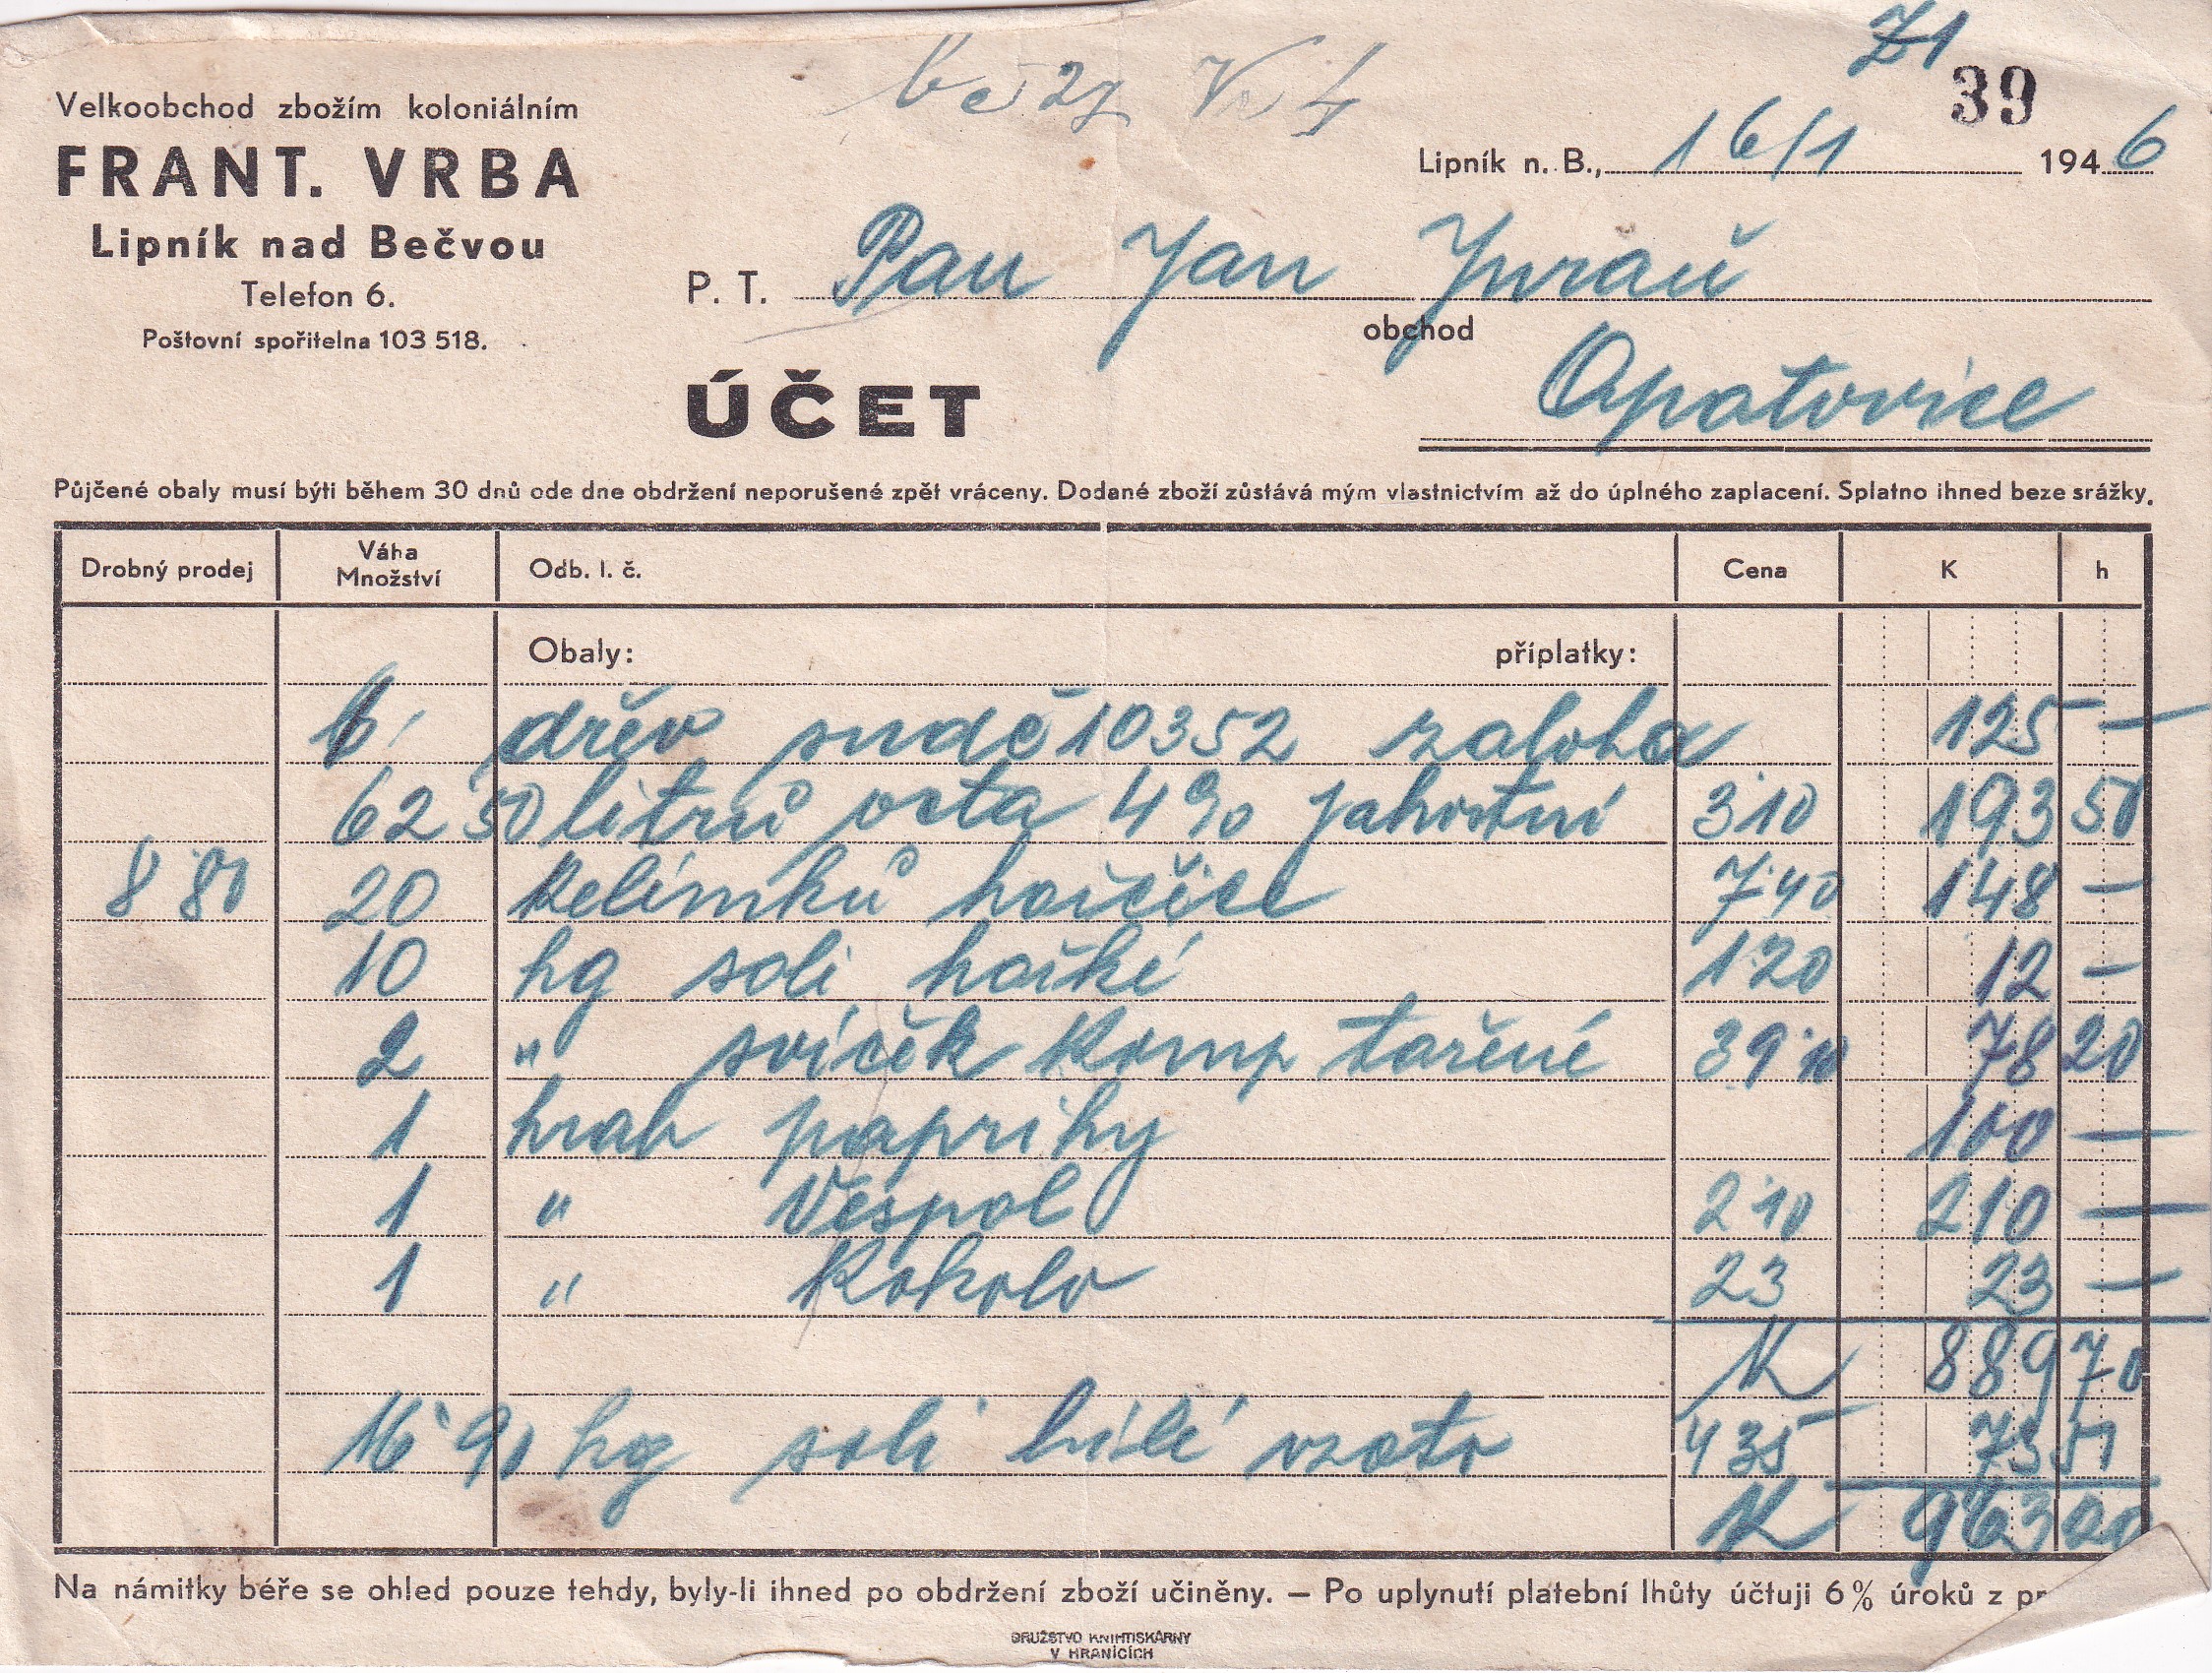 Z1
39
Velkoobchod zbožím koloniálním
FRANT. VRBA
Lipník nad Bečvou
Telefon 6.
Poštovní spořitelna 103 518.
Lipník n. B., 16/1 1946
P. T. Pan Jan Juraň
obchod
Opatovice
ÚČET
Půjčené obaly musí býti během 30 dnů ode dne obdržení neporušené zpět vráceny. Dodané zboží zůstává mým vlastnictvím až do úplného zaplacení. Splatno ihned beze srážky.
Drobný prodej Váha Množství Odb. l. č. Cena K h
Obaly: příplatky:
dřev sudč 10352 zaloha 125 —
62 50 litrů octa 4% jahodní 3 10 193 50
8 80 20 kelímků hořčice 7 40 148 —
10 kg soli hořké 1 20 12 —
2 " svíček komp tařené 39 10 78 20
1 krab papriky 100 —
1 " Vespol 2 10 210 —
1 " Kokolo 23 23 —
K 889 70
16 90 kg soli bílé vzato 4 35 73 51
K 963 20
Na námitky béře se ohled pouze tehdy, byly-li ihned po obdržení zboží učiněny. — Po uplynutí platební lhůty účtuji 6% úroků z
DRUŽSTVO KNIHTISKÁRNY
V HRANICÍCH